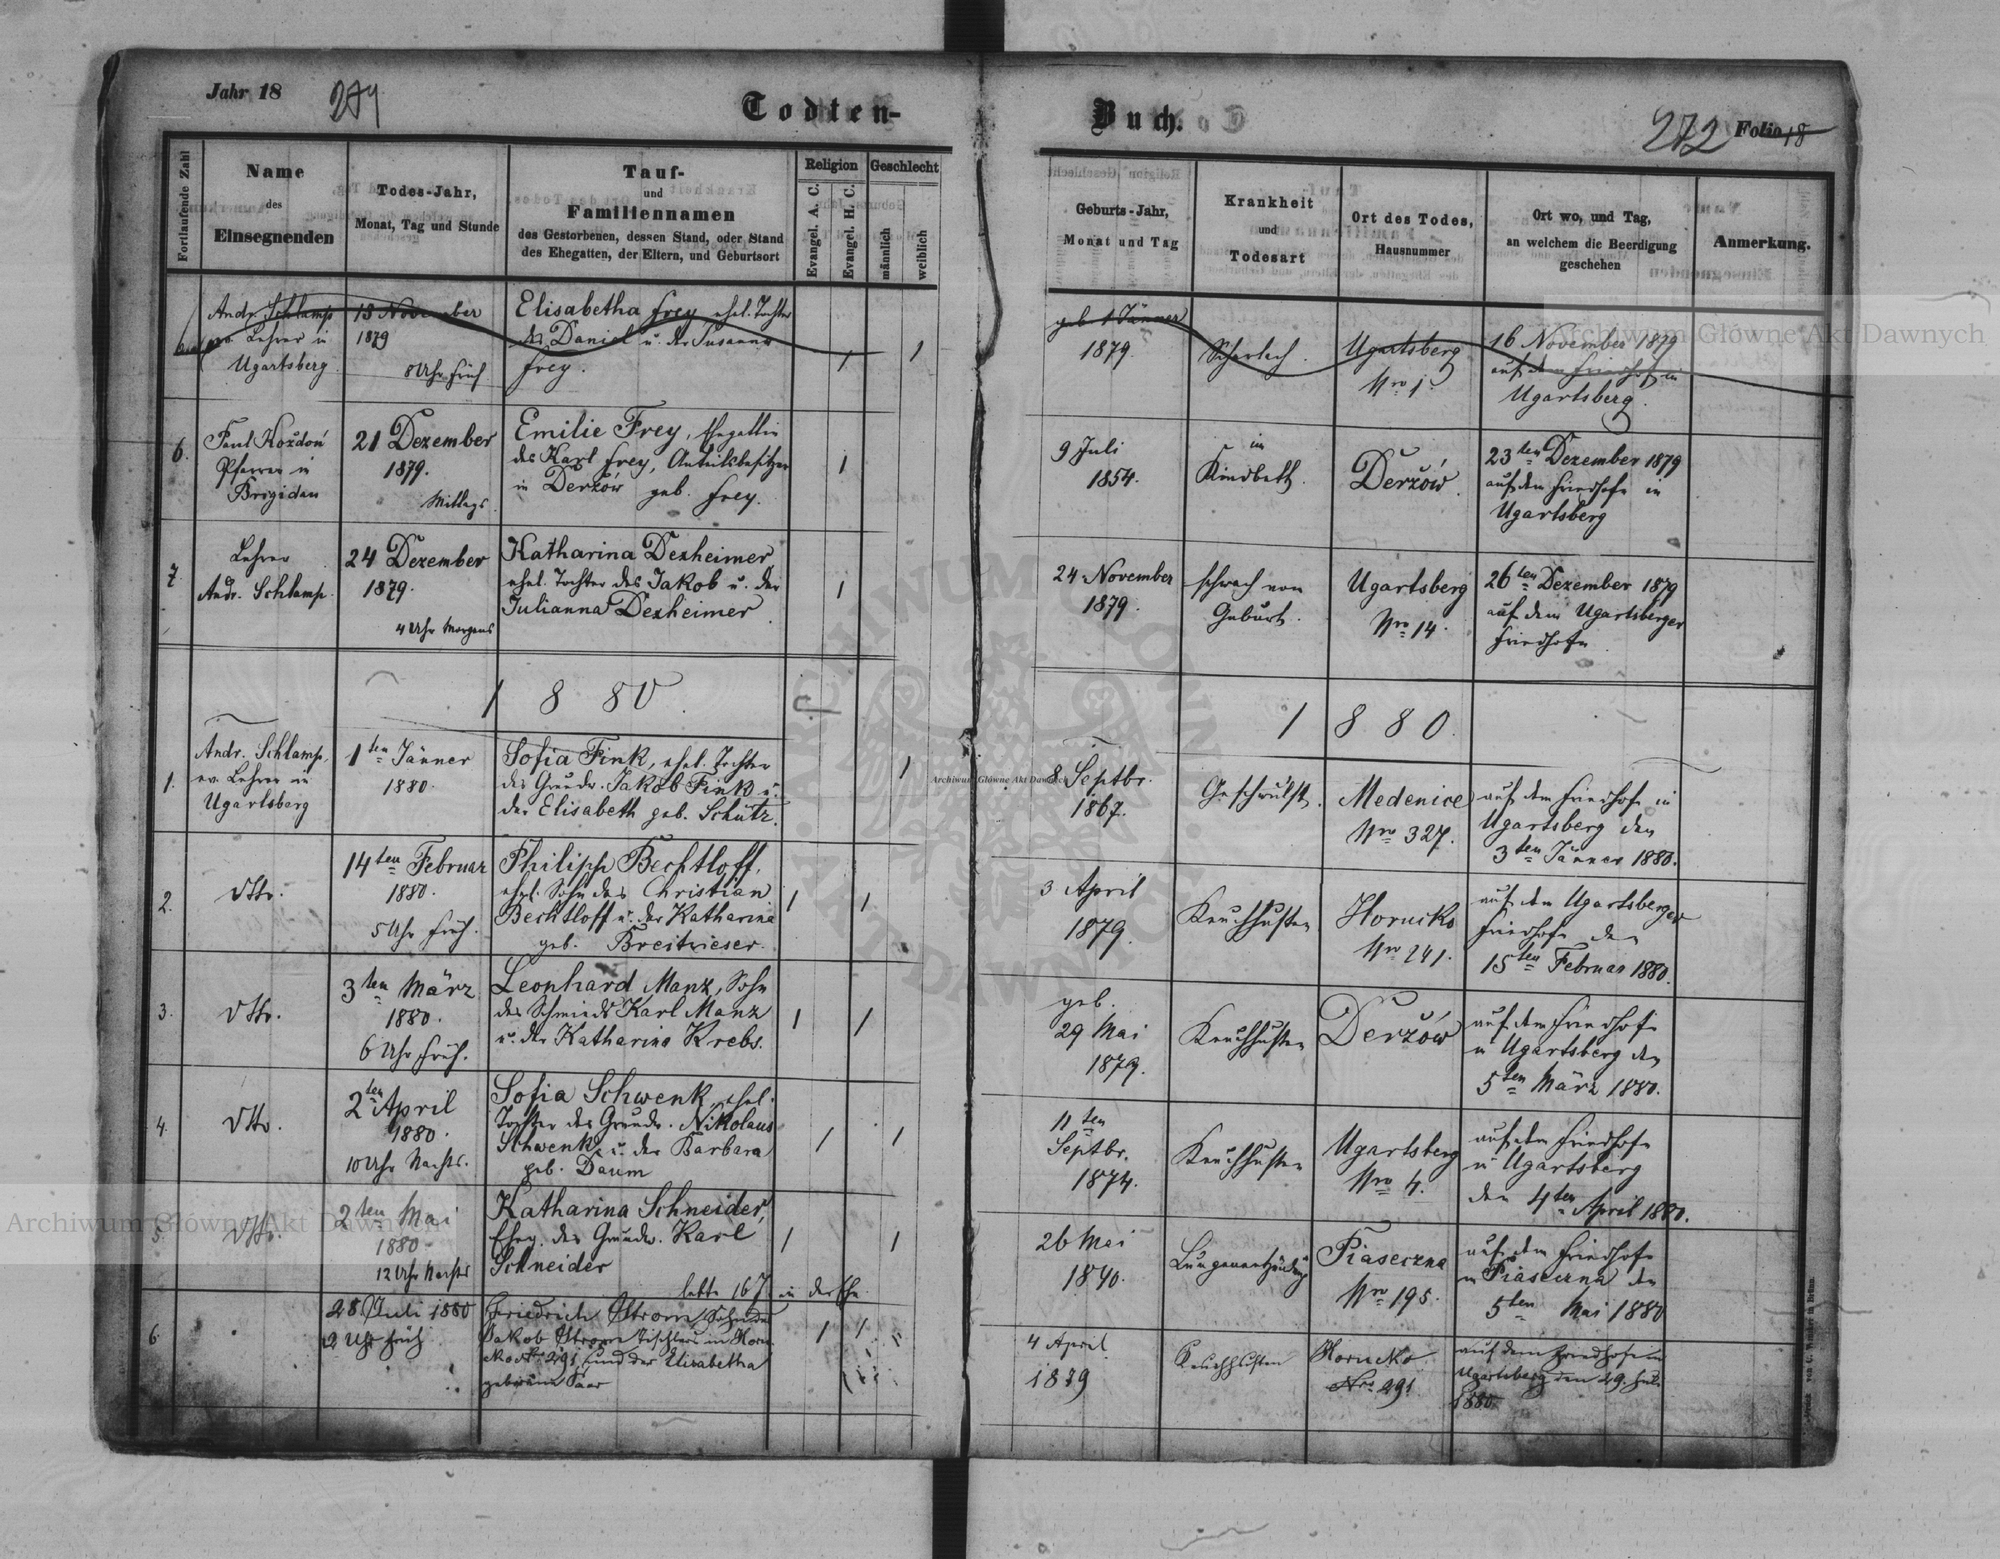 Jahr 18
Todten-
Buch.
272 Folio 18
Fortlaufende Zahl
Name
des
Einsegnenden
Todes-Jahr,
Monat, Tag und Stunde
Tauf-
und
Familiennamen
des Gestorbenen, dessen Stand, oder Stand
des Ehegatten, der Eltern, und Geburtsort
Religion
Evangel. A. C.
Evangel. H. C.
Geschlecht
männlich
weiblich
Geburts-Jahr,
Monat und Tag
Krankheit
und
Todesart
Ort des Todes,
Hausnummer
Ort wo, und Tag,
an welchem die Beerdigung
geschehen
Anmerkung.
Andr. Schlamp
ev. Lehrer in
Ugartsberg
13 November
1879
8 Uhr Früh
Elisabetha Frey ehel. Tochter
des Daniel u. der Susanna
Frey.
1
1
geb 1 Jänner
1879.
Scharlach.
Ugartsberg
Nro 1.
16 November 1879
auf dem Friedhof in
Ugartsberg.
6.
Paul Kozdoń
Pfarrer in
Brigidau
21 Dezember
1879.
Mittags.
Emilie Frey, Ehegattin
des Karl Frey, Anteilsbesitzer
in Derzów geb. Frey.
1
9 Juli
1854.
im
Kindbett.
Derzów.
23ten Dezember 1879
auf dem Friedhofe in
Ugartsberg
7.
Lehrer
Andr. Schlamp.
24 Dezember
1879.
4 Uhr Morgens
Katharina Dexheimer
ehel. Tochter des Jakob u. der
Julianna Dexheimer.
1
24 November
1879.
schwach von
Geburt.
Ugartsberg
Nro 14.
26ten Dezember 1879
auf dem Ugartsberger
Friedhofe.
1880.
1880.
1.
Andr. Schlamp,
ev. Lehrer in
Ugartsberg
1ten Jänner
1880.
Sofia Fink, ehel. Tochter
des Grundw. Jakob Fink u.
der Elisabeth geb. Schütz.
1
8 Septbr.
1867.
Geschwulst.
Medenice
Nro 327.
auf dem Friedhofe in
Ugartsberg den
3ten Jänner 1880.
2.
dtto.
14ten Februar
1880.
5 Uhr Früh.
Philipp Bechtloff,
ehel. Sohn des Christian
Bechtloff u. der Katharina
geb. Breitwieser.
1
1
3 April
1879.
Keuchhusten
Horucko
Nro 241.
auf dem Ugartsberger
Friedhofe den
15ten Februar 1880.
3.
dtto.
3ten März
1880.
6 Uhr Früh.
Leonhard Manz, Sohn
des Schmieds Karl Manz
u. der Katharina Krebs.
1
1
geb.
29 Mai
1879.
Keuchhusten
Derzów
auf dem Friedhofe
in Ugartsberg den
5ten März 1880.
4.
dtto.
2ten April
1880.
10 Uhr Nachts.
Sofia Schwenk, ehel.
Tochter des Grundw. Nikolaus
Schwenk u. der Barbara
geb. Daum
1
1
11ten
Septbr.
1874.
Keuchhusten
Ugartsberg
Nro 4.
auf dem Friedhofe
in Ugartsberg
den 4ten April 1880.
5.
dtto.
2ten Mai
1880
12 Uhr Nachts
Katharina Schneider,
Eheg. des Grundw. Karl
Schneider
lebte 16 J. in der Ehe.
1
1
26 Mai
1840.
Lungenentzündung
Piaseczna
Nro 195.
auf dem Friedhofe
in Piaseczna den
5ten Mai 1880
6.
28 Juli 1880
2 Uhr Früh
Friedrich Strom Sohn des
Jakob Strom Tischlers in Horu-
cko Nr 291, und der Elisabetha
geborene Saar
1
1
4 April
1879
Keuchhusten
Horucko
Nro 291
auf dem Friedhofe in
Ugartsberg den 29. Juli
1880
Archiwum Główne Akt Dawnych
Archiwum Główne Akt Dawnych
Archiwum Główne Akt Dawnych
ARCHIWUM GŁÓWNE AKT DAWNYCH